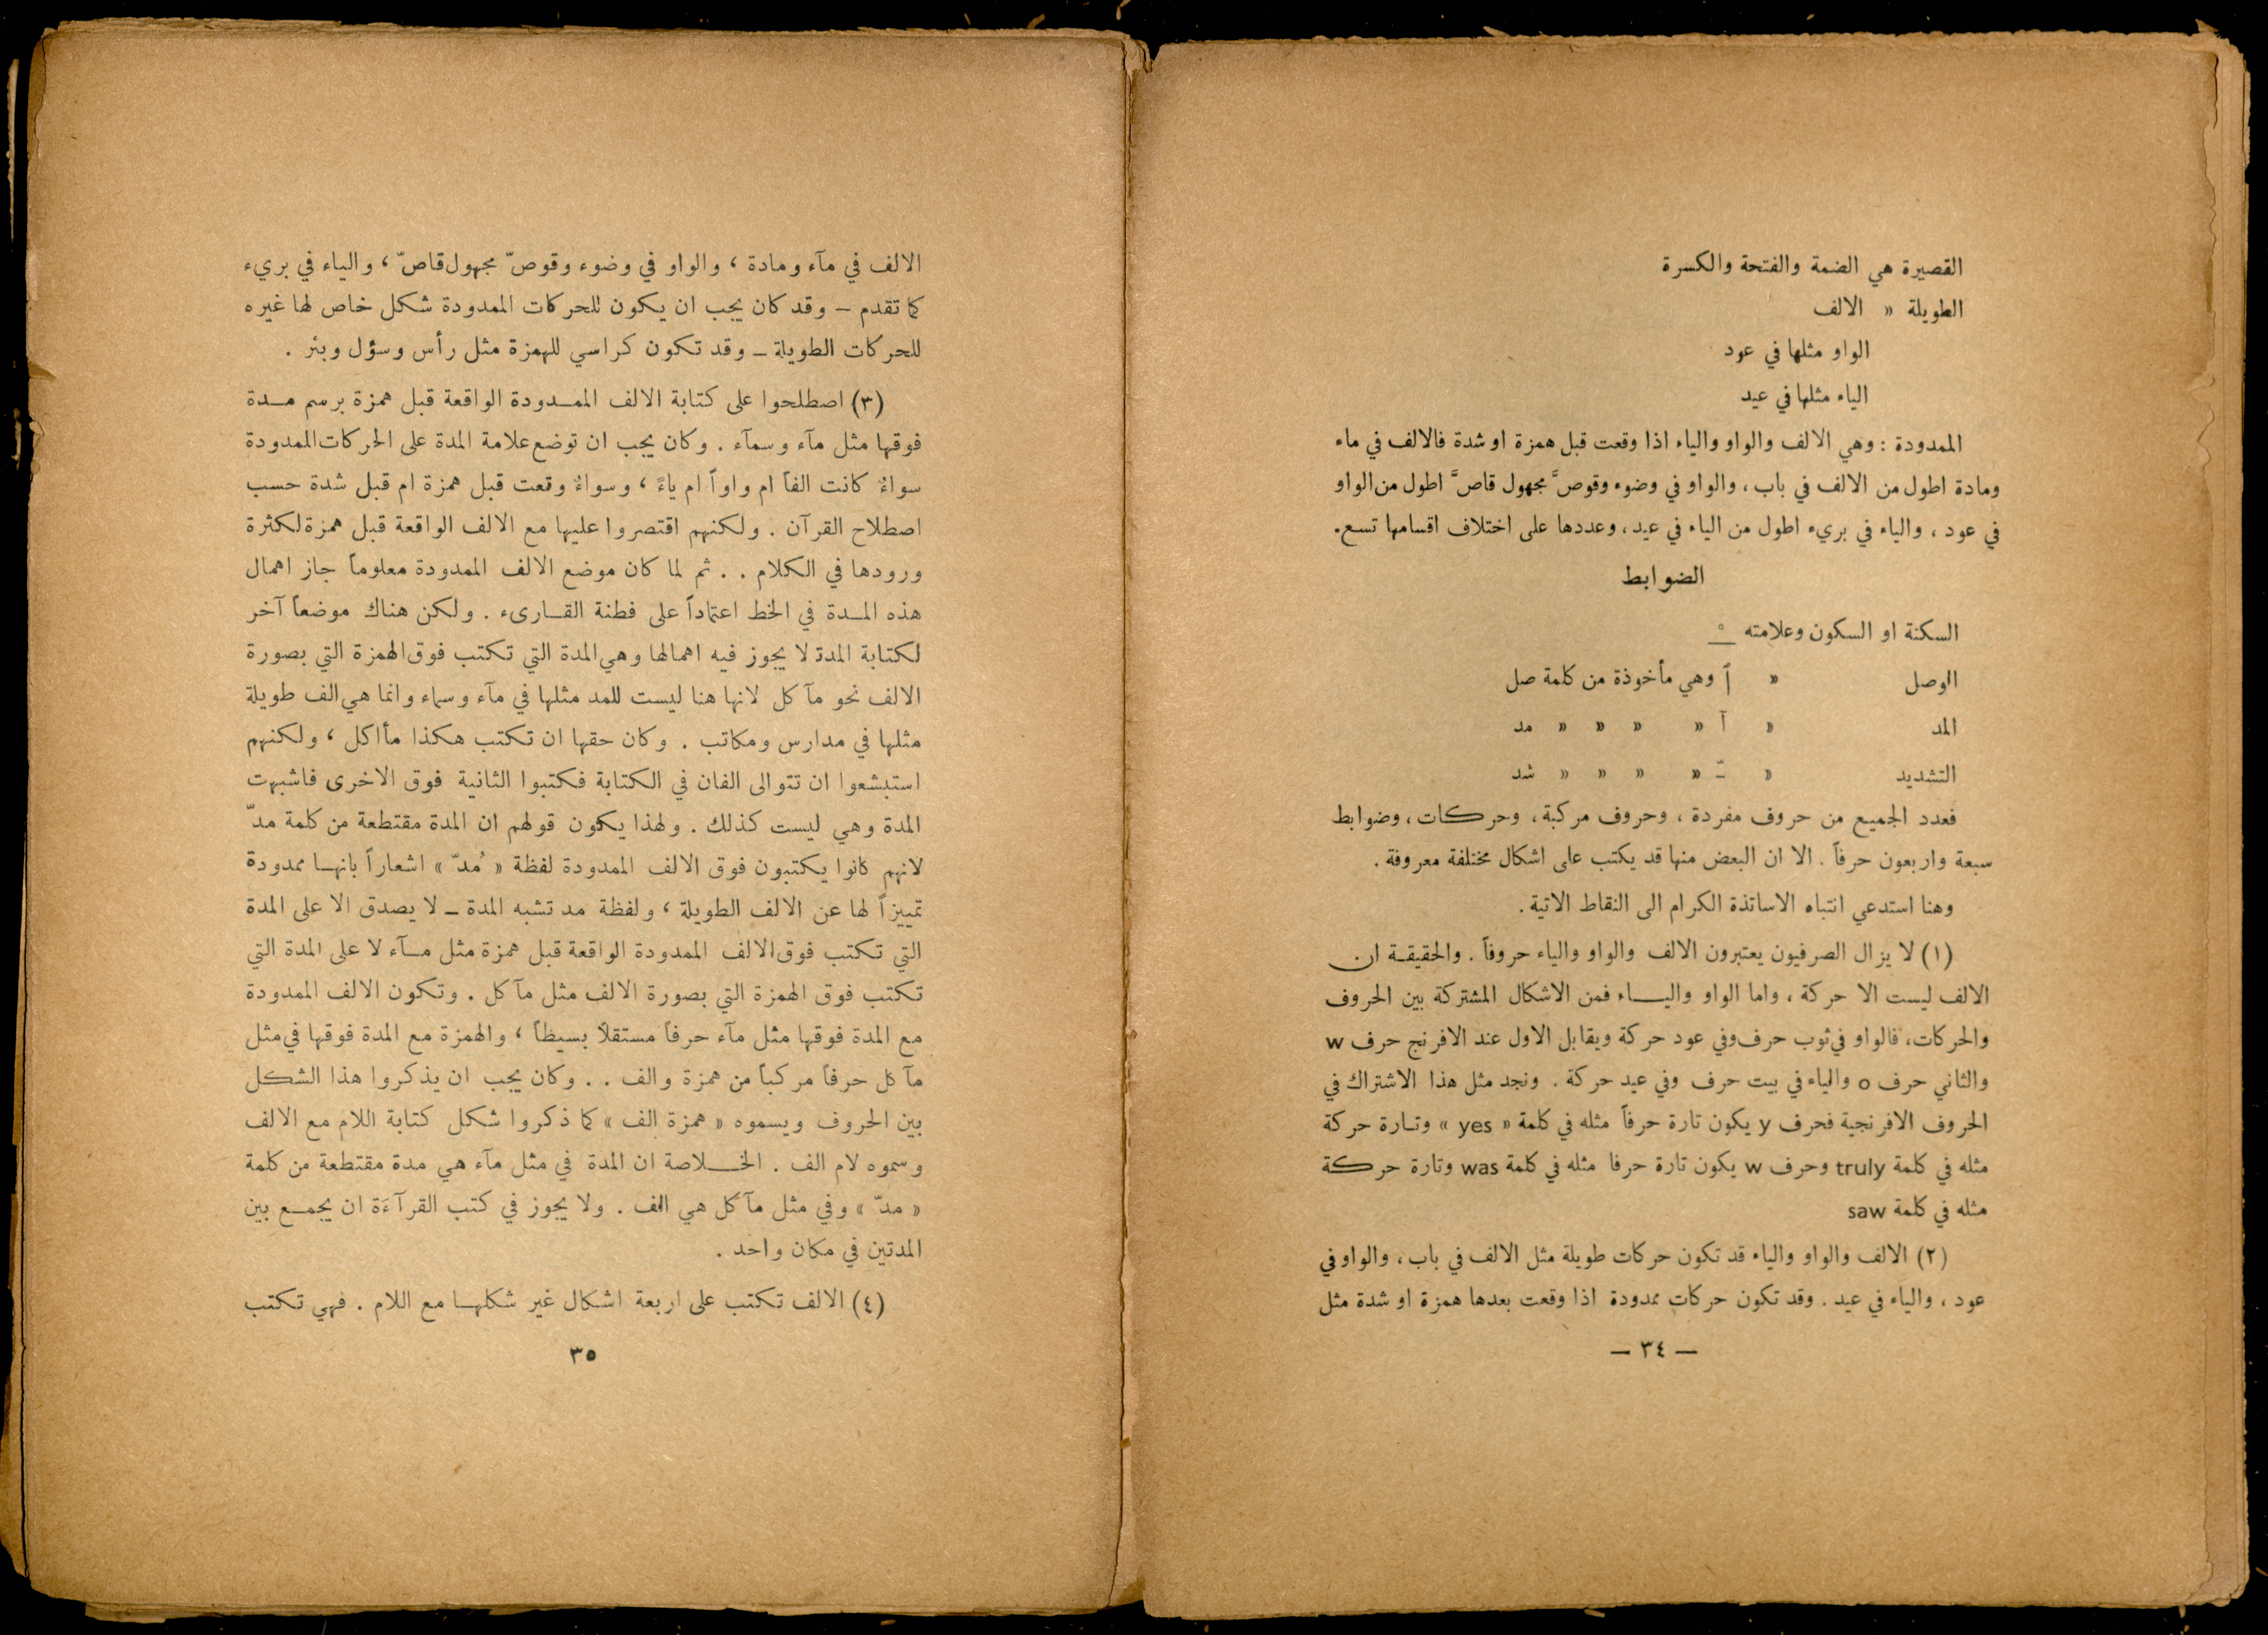 القصيرة هي الضمة والفتحة والكسرة
الطويلة « الالف
الواو مثلها في عود
الياء مثلها في عيد
الممدودة : وهي الالف والواو والياء اذا وقعت قبل همزة او شدة فالالف في ماء
ومادة اطول من الالف في باب ، والواو في وضوء وقوصَّ مجهول قاصَّ اطول من الواو
في عود ، والياء في بريء اطول من الياء في عيد ، وعددها على اختلاف اقسامها تسع .
الضوابط
السكنة او السكون وعلامته ـْ
الوصل « ٱ وهي مأخوذة من كلمة صل
المد « آ « « « « مد
التشديد « ـّ « « « « شد
فعدد الجميع من حروف مفردة ، وحروف مركبة ، وحركات ، وضوابط
سبعة واربعون حرفاً . الا ان البعض منها قد يكتب على اشكال مختلفة معروفة .
وهنا استدعي انتباه الاساتذة الكرام الى النقاط الاتية .
(١) لا يزال الصرفيون يعتبرون الالف والواو والياء حروفاً . والحقيقـة ان
الالف ليست الا حركة ، واما الواو واليـــاء فمن الاشكال المشتركة بين الحروف
والحركات ، فالواو في ثوب حرف وفي عود حركة ويقابل الاول عند الافرنج حرف w
والثاني حرف o والياء في بيت حرف وفي عيد حركة . ونجد مثل هذا الاشتراك في
الحروف الافرنجية فحرف y يكون تارة حرفاً مثله في كلمة « yes » وتـارة حركة
مثله في كلمة truly وحرف w يكون تارة حرفا مثله في كلمة was وتارة حركة
مثله في كلمة saw
(٢) الالف والواو والياء قد تكون حركات طويلة مثل الالف في باب ، والواو في
عود ، والياء في عيد . وقد تكون حركات ممدودة اذا وقعت بعدها همزة او شدة مثل
— ٣٤ —
الالف في مآء ومادة ، والواو في وضوء وقوصّ مجهول قاصّ ، والياء في بريء
كما تقدم – وقد كان يجب ان يكون للحركات الممدودة شكل خاص لها غيره
للحركات الطويلة – وقد تكون كراسي للهمزة مثل رأس وسؤل وبئر .
(٣) اصطلحوا على كتابة الالف الممــدودة الواقعة قبل همزة برسم مــدة
فوقها مثل مآء وسمآء . وكان يجب ان توضع علامة المدة على الحركات الممدودة
سواءٌ كانت الفاً ام واواً ام ياءً ، وسواءٌ وقعت قبل همزة ام قبل شدة حسب
اصطلاح القرآن . ولكنهم اقتصروا عليها مع الالف الواقعة قبل همزة لكثرة
ورودها في الكلام . . ثم لما كان موضع الالف الممدودة معلوماً جاز اهمال
هذه المــدة في الخط اعتماداً على فطنة القــارىء . ولكن هناك موضعاً آخر
لكتابة المدة لا يجوز فيه اهمالها وهي المدة التي تكتب فوق الهمزة التي بصورة
الالف نحو مآكل لانها هنا ليست للمد مثلها في مآء وسماء وانما هي الف طويلة
مثلها في مدارس ومكاتب . وكان حقها ان تكتب هكذا مأاكل ، ولكنهم
استبشعوا ان تتوالى الفان في الكتابة فكتبوا الثانية فوق الاخرى فاشبهت
المدة وهي ليست كذلك . ولهذا يكون قولهم ان المدة مقتطعة من كلمة مدّ
لانهم كانوا يكتبون فوق الالف الممدودة لفظة « مُدّ » اشعاراً بانهــا ممدودة
تمييزاً لها عن الالف الطويلة ، ولفظة مد تشبه المدة – لا يصدق الا على المدة
التي تكتب فوق الالف الممدودة الواقعة قبل همزة مثل مــآء لا على المدة التي
تكتب فوق الهمزة التي بصورة الالف مثل مآكل . وتكون الالف الممدودة
مع المدة فوقها مثل مآء حرفاً مستقلاً بسيطاً ، والهمزة مع المدة فوقها في مثل
مآكل حرفاً مركباً من همزة والف . . وكان يجب ان يذكروا هذا الشكل
بين الحروف ويسموه « همزة الف » كما ذكروا شكل كتابة اللام مع الالف
وسموه لام الف . الخــلاصة ان المدة في مثل مآء هي مدة مقتطعة من كلمة
« مدّ » وفي مثل مآكل هي الف . ولا يجوز في كتب القرآءَة ان يجمــع بين
المدتين في مكان واحد .
(٤) الالف تكتب على اربعة اشكال غير شكلهــا مع اللام . فهي تكتب
٣٥